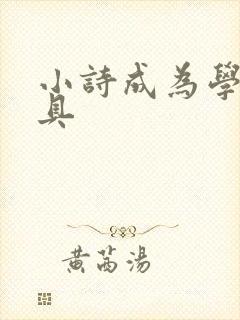 小詩成為學
具
黃萵湯